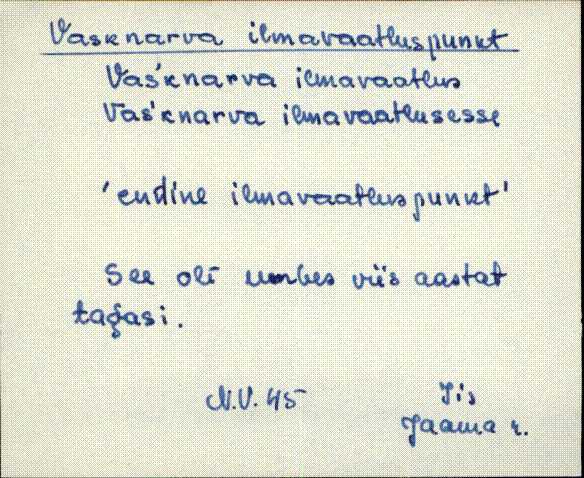 Vasknarva ilmavaatluspunkt
Vaśknarva ilmavaatlus
Vaśknarva ilmavaatlusesse
'endine ilmavaatluspunkt'
See oli umbes viis aastat
tagasi.
N.V. 45 Iis
Jaama k.